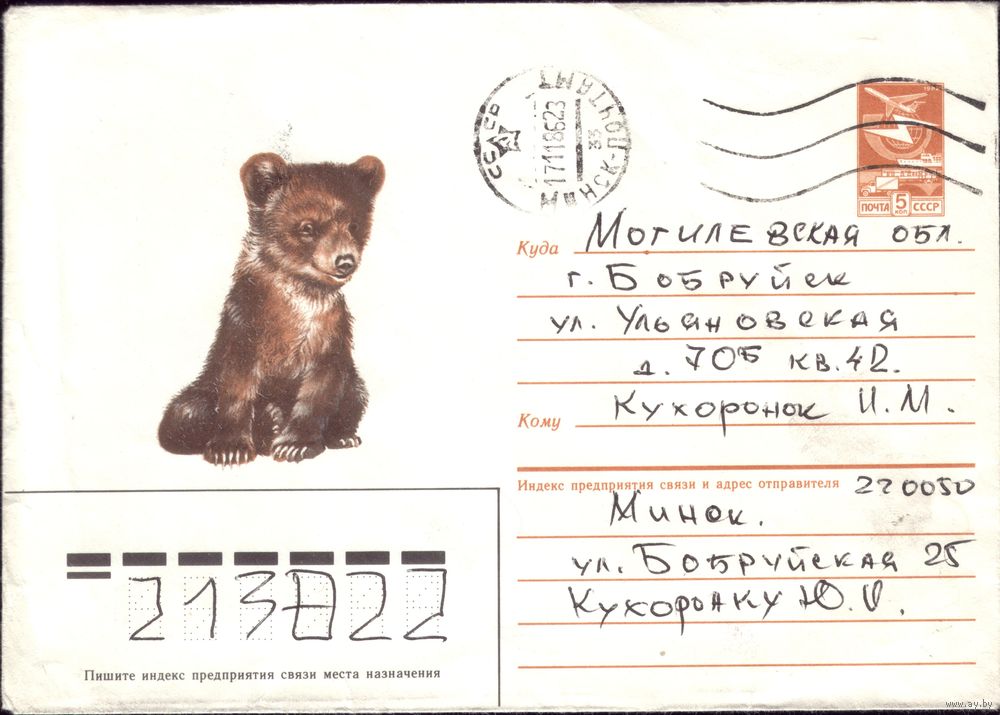 СССР
МИНСК-ПОЧТАМТ
17118623
33
1982
ПОЧТА 5 КОП СССР
Куда Могилевская обл.
г. Бобруйск
ул. Ульяновская
д. 70Б кв. 42.
Кому Кухоронок И.М.
Индекс предприятия связи и адрес отправителя 220050
Минск.
ул. Бобруйская 25
Кухоронку Ю.И.
213022
Пишите индекс предприятия связи места назначения
www.ay.by